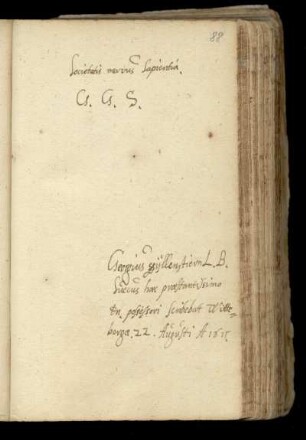 88
Societatis nervus Sapientia.
G. G. S.
Georgius Gÿllenstiern L. B.
Suecus hæc præstantissimo
Dn. possessori scribebat Witte-
bergæ. 22. Augusti A°